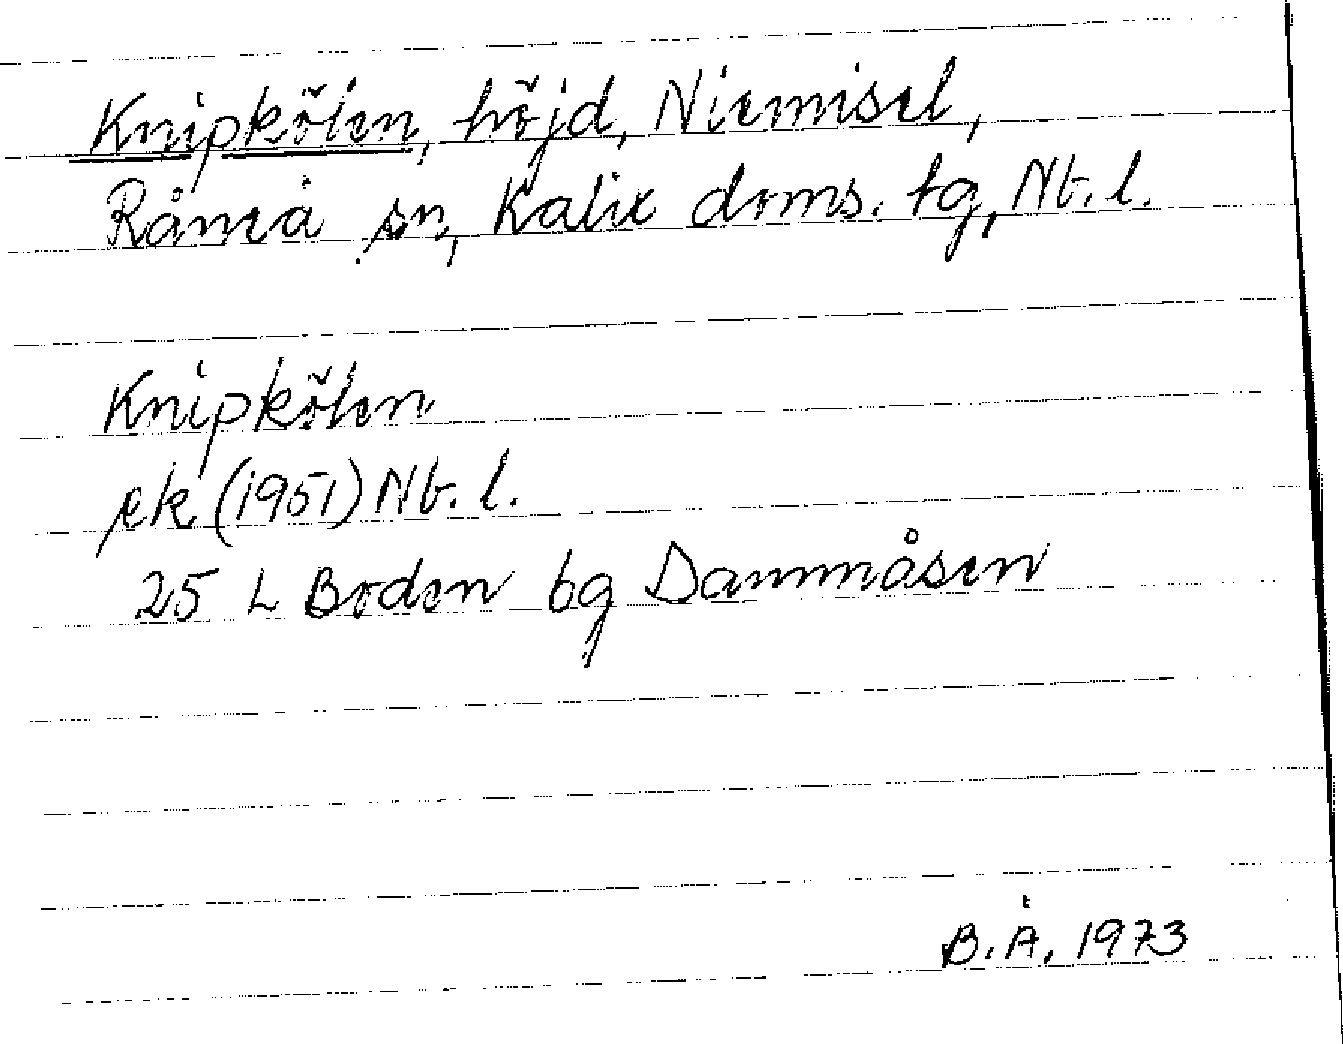 Knipkölen, höjd, Niemisel,
Råneå sn, Kalix doms. tg, Nb. l.
Knipkölen
ek (1951) Nb. l.
25 L Boden bg Dammåsen
B.Å. 1973